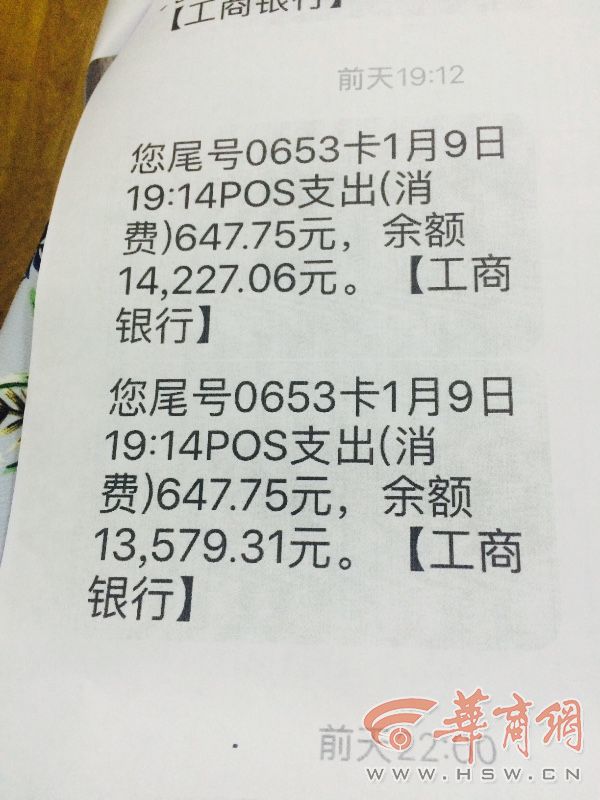 【工商银行】
前天19:12
您尾号0653卡1月9日
19:14POS支出(消
费)647.75元，余额
14,227.06元。【工商
银行】
您尾号0653卡1月9日
19:14POS支出(消
费)647.75元，余额
13,579.31元。【工商
银行】
前天22:00
華商網
WWW.HSW.CN